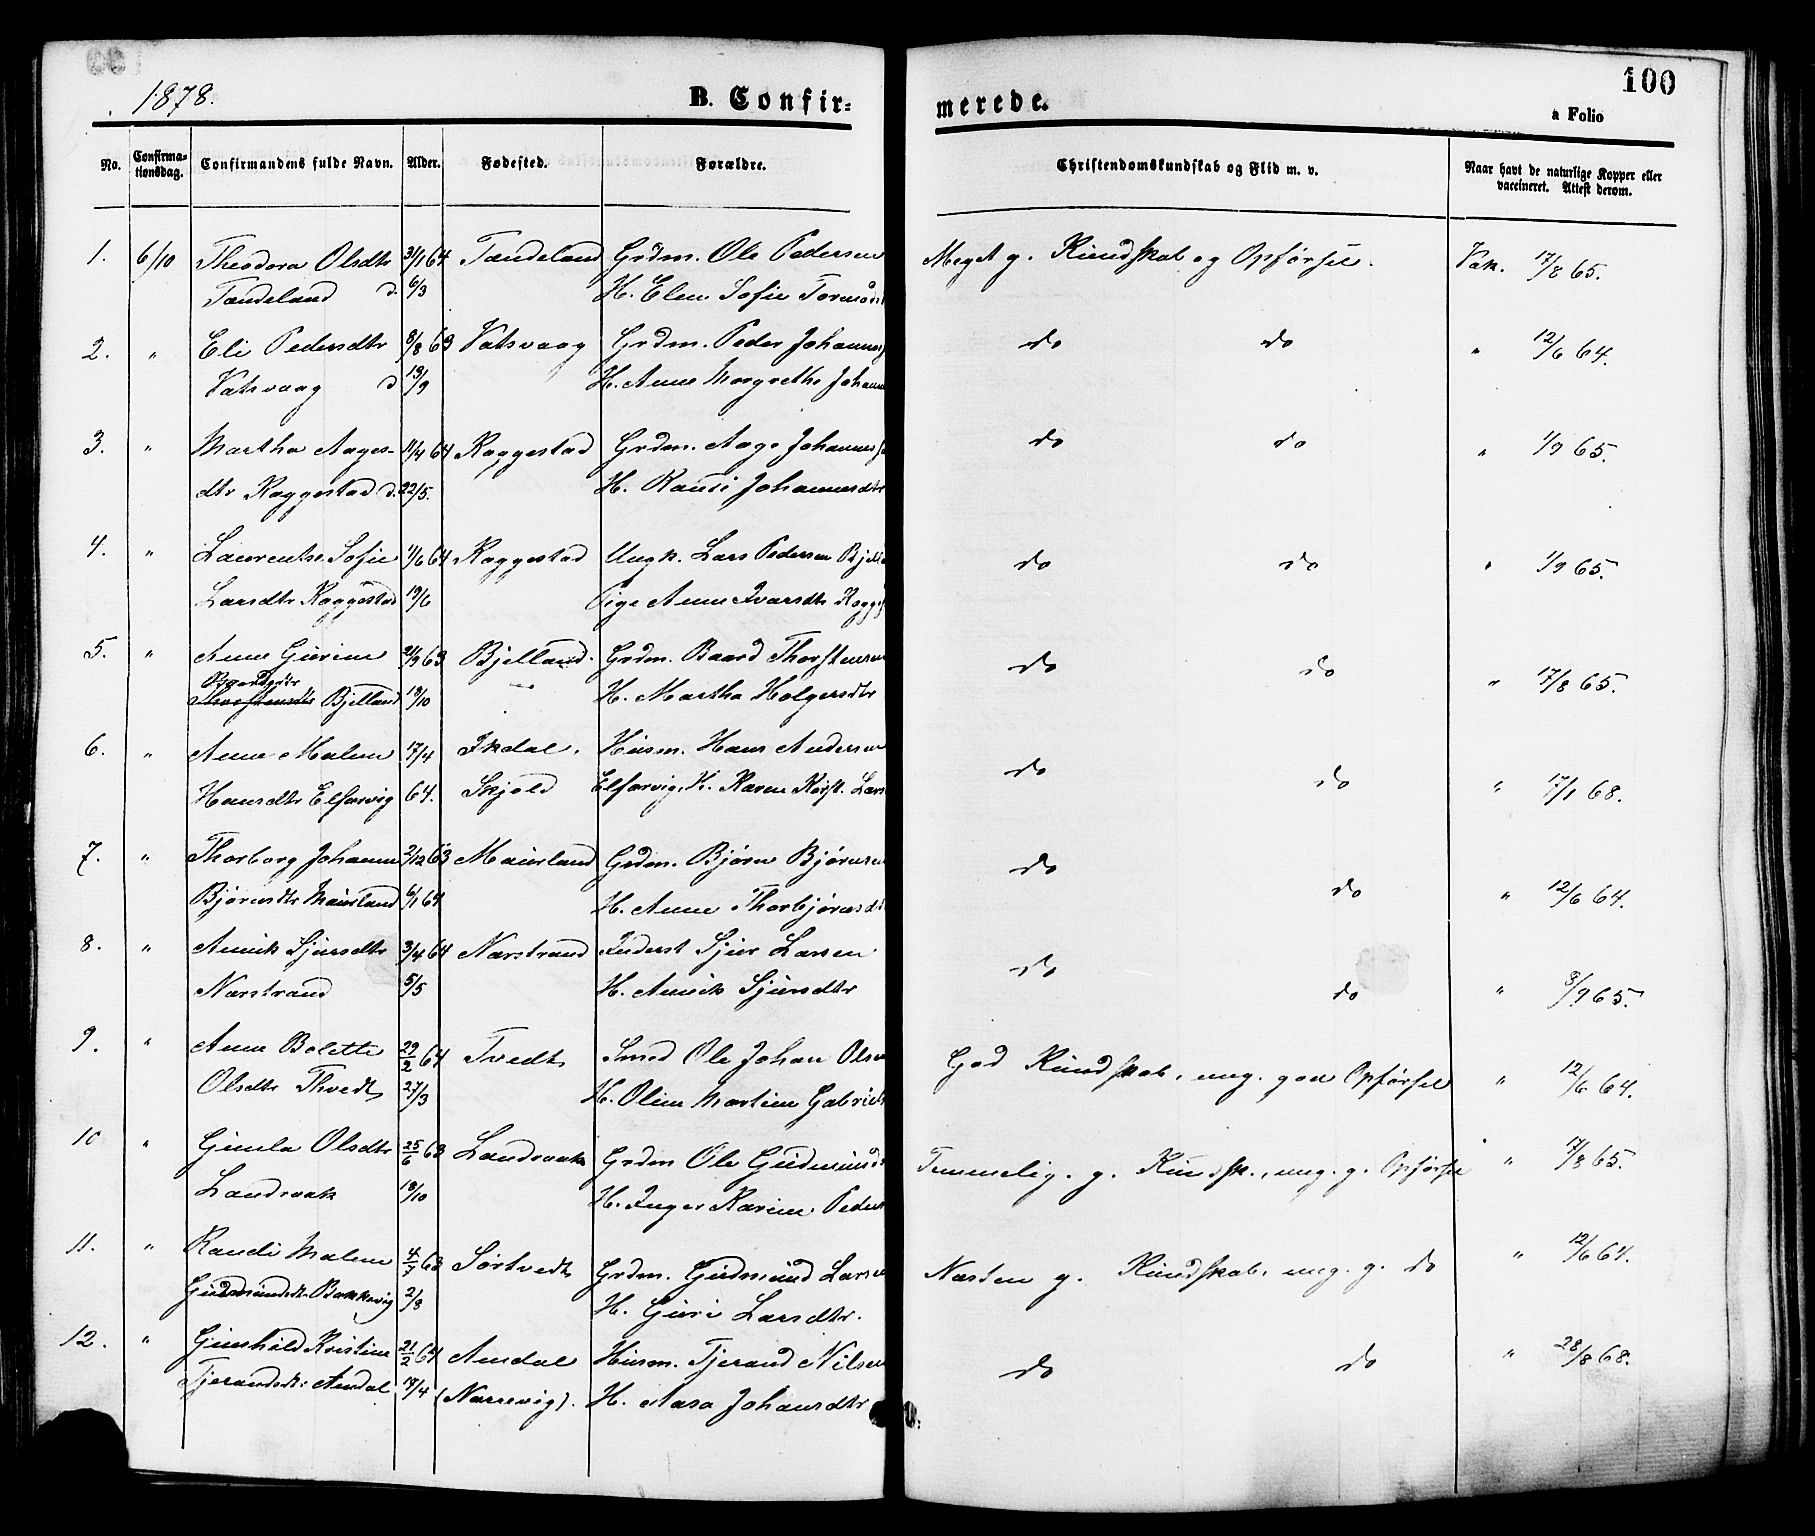 1878.
B. Confir-
merede.
100
a Folio
No.
Confirma-
tionsdag.
Confirmandens fulde Navn.
Alder.
Fødested.
Forældre.
Christendomskundskab og Flid m. v.
Naar havt de naturlige Kopper eller
vaccineret. Attest derom.
1. 6/10 Theodora Olsdtr 31/1 64 Tandeland Grdm. Ole Pedersen Meget g. Kundskab og Opførsel. Vak. 17/8 65.
Tandeland d. 6/3 H. Elen Sofie
2. " Eli Pedersdtr 8/8 63 Vatsvaag Grdm. Peder Johannes do do " 12/6 64.
Vatsvaag d 13/9 H. Anne Margrethe Johann
3. " Martha Aages- 11/4 64 Raggestad Grdm. Aage Johannes do do " 1/9 65.
dtr Raggestad d. 22/5. H. Randi Johannesdtr
4. " Laurentse Sofie 1/6 64 Raggestad Ungk. Lars Pedersen do do " 1/9 65.
Larsdtr Raggestad 19/6 Pige Anne Ivarsdtr Ragg
5. " Anne Gurine 21/9 63 Bjelland. Grdm. Baard Thorstensen do do " 17/8 65.
Baardsdtr
Thorstensdtr Bjelland 18/10 H. Martha Holgersdtr
6. " Anne Malene 17/4 Ikdal. Husm. Hans Andersen do do " 17/1 68.
Hansdtr Elfarvig 64. Skjold Elfarvig, H. Karen Kirst. Lars
7. " Thorborg Johanne 2/12 63 Maurland Grdm. Bjørn Bjørnsen do do " 12/6 64.
Bjørnsdtr Maurland 6/1 64 H. Anne Thorbjørnsd
8. " Annik Sjursdtr 3/4 64 Narstrand Inderst Sjur Larsen do do " 8/9 65.
Narstrand 5/5 H. Annik Sjursdtr
9. " Anne Bolette 29/2 64 Tvedt Smed Ole Johan Olsen God Kundskab, meg. god Opførsel " 12/6 64.
Olsdtr Thvedt 27/3 H. Oline Martine Gabriels
10 " Gunla Olsdtr 25/6 63 Landsvak Grdm Ole Gudmunds Temmelig. g. Kundsk., meg. g. Opførsel " 17/8 65.
Landsvak 18/10 H. Inger Karine Peders
11. " Randi Malene 4/7 63 Sørtvedt Grdm. Gudmund Larsen Næsten g. Kundskab, meg. g. do " 12/6 64.
Gudmundsdt. Bakkevig 2/8 H. Guri Larsdtr.
12. " Gunhild Kristine 21/2 64 Amdal Husm. Tjerand Nilsen do do " 28/8 68.
Tjerandsdt. Amdal 18/4 (Narrevig). H. Aasa Johansdtr